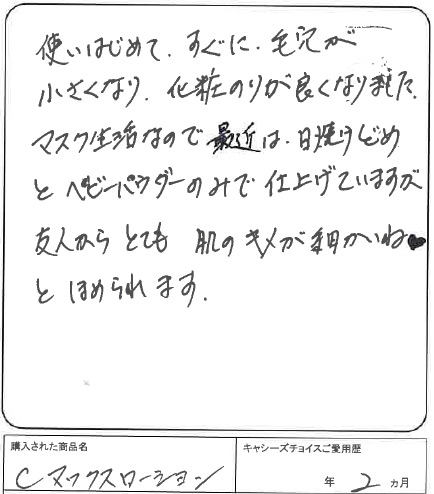 使いはじめて、すぐに、毛穴が
小さくなり、化粧のりが良くなりました。
マスク生活なので最近は、日焼けどめ
と ベビーパウダーのみで 仕上げていますが
友人から とても 肌の キメが 細かいね♥
と ほめられます。
購入された商品名
キャシーズチョイスご愛用歴
Cマックスローション
年 2 ヵ月